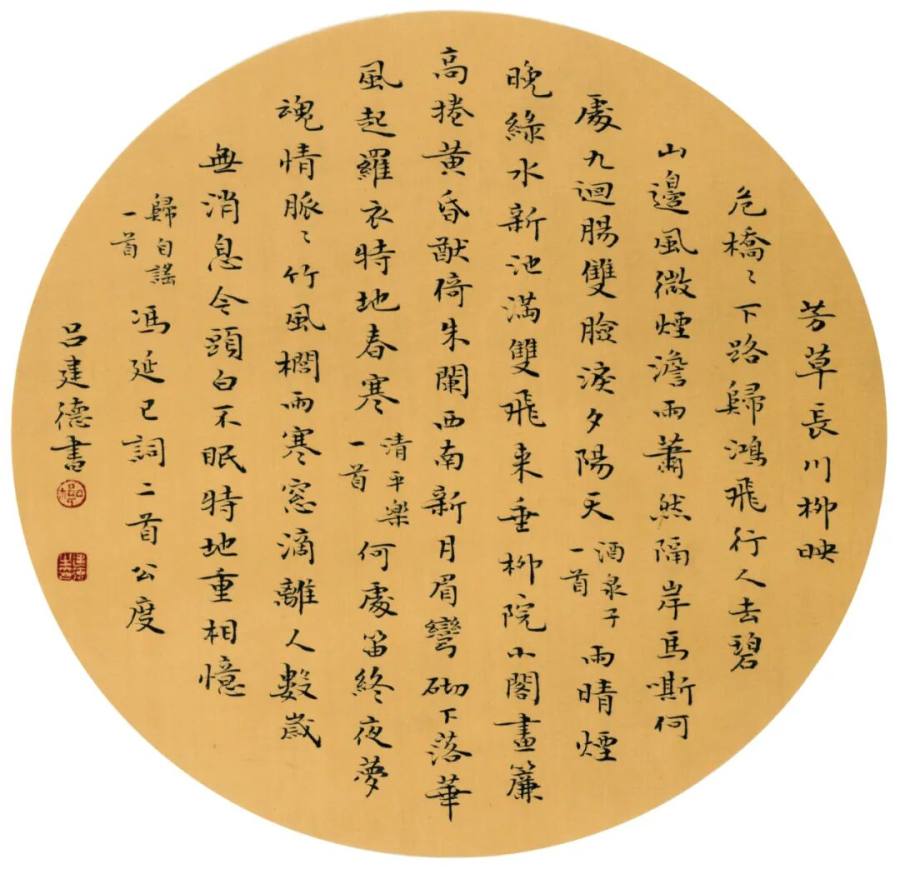 芳草長川柳映
危橋〻下路歸鴻飛行人去碧
山邊風微煙澹雨蕭然隔岸馬嘶何
處九迴腸雙臉淚夕陽天酒泉子一首雨晴煙
晚綠水新池滿雙飛來垂柳院小閣畫簾
高捲黃昏倚朱闌西南新月眉彎砌下落華
風起羅衣特地春寒清平樂一首何處笛終夜夢
魂情脈〻竹風櫩雨寒窓滴離人數歲
無消息今頭白不眠特地重相憶
歸自謠一首馮延巳詞二首公度
呂建德書